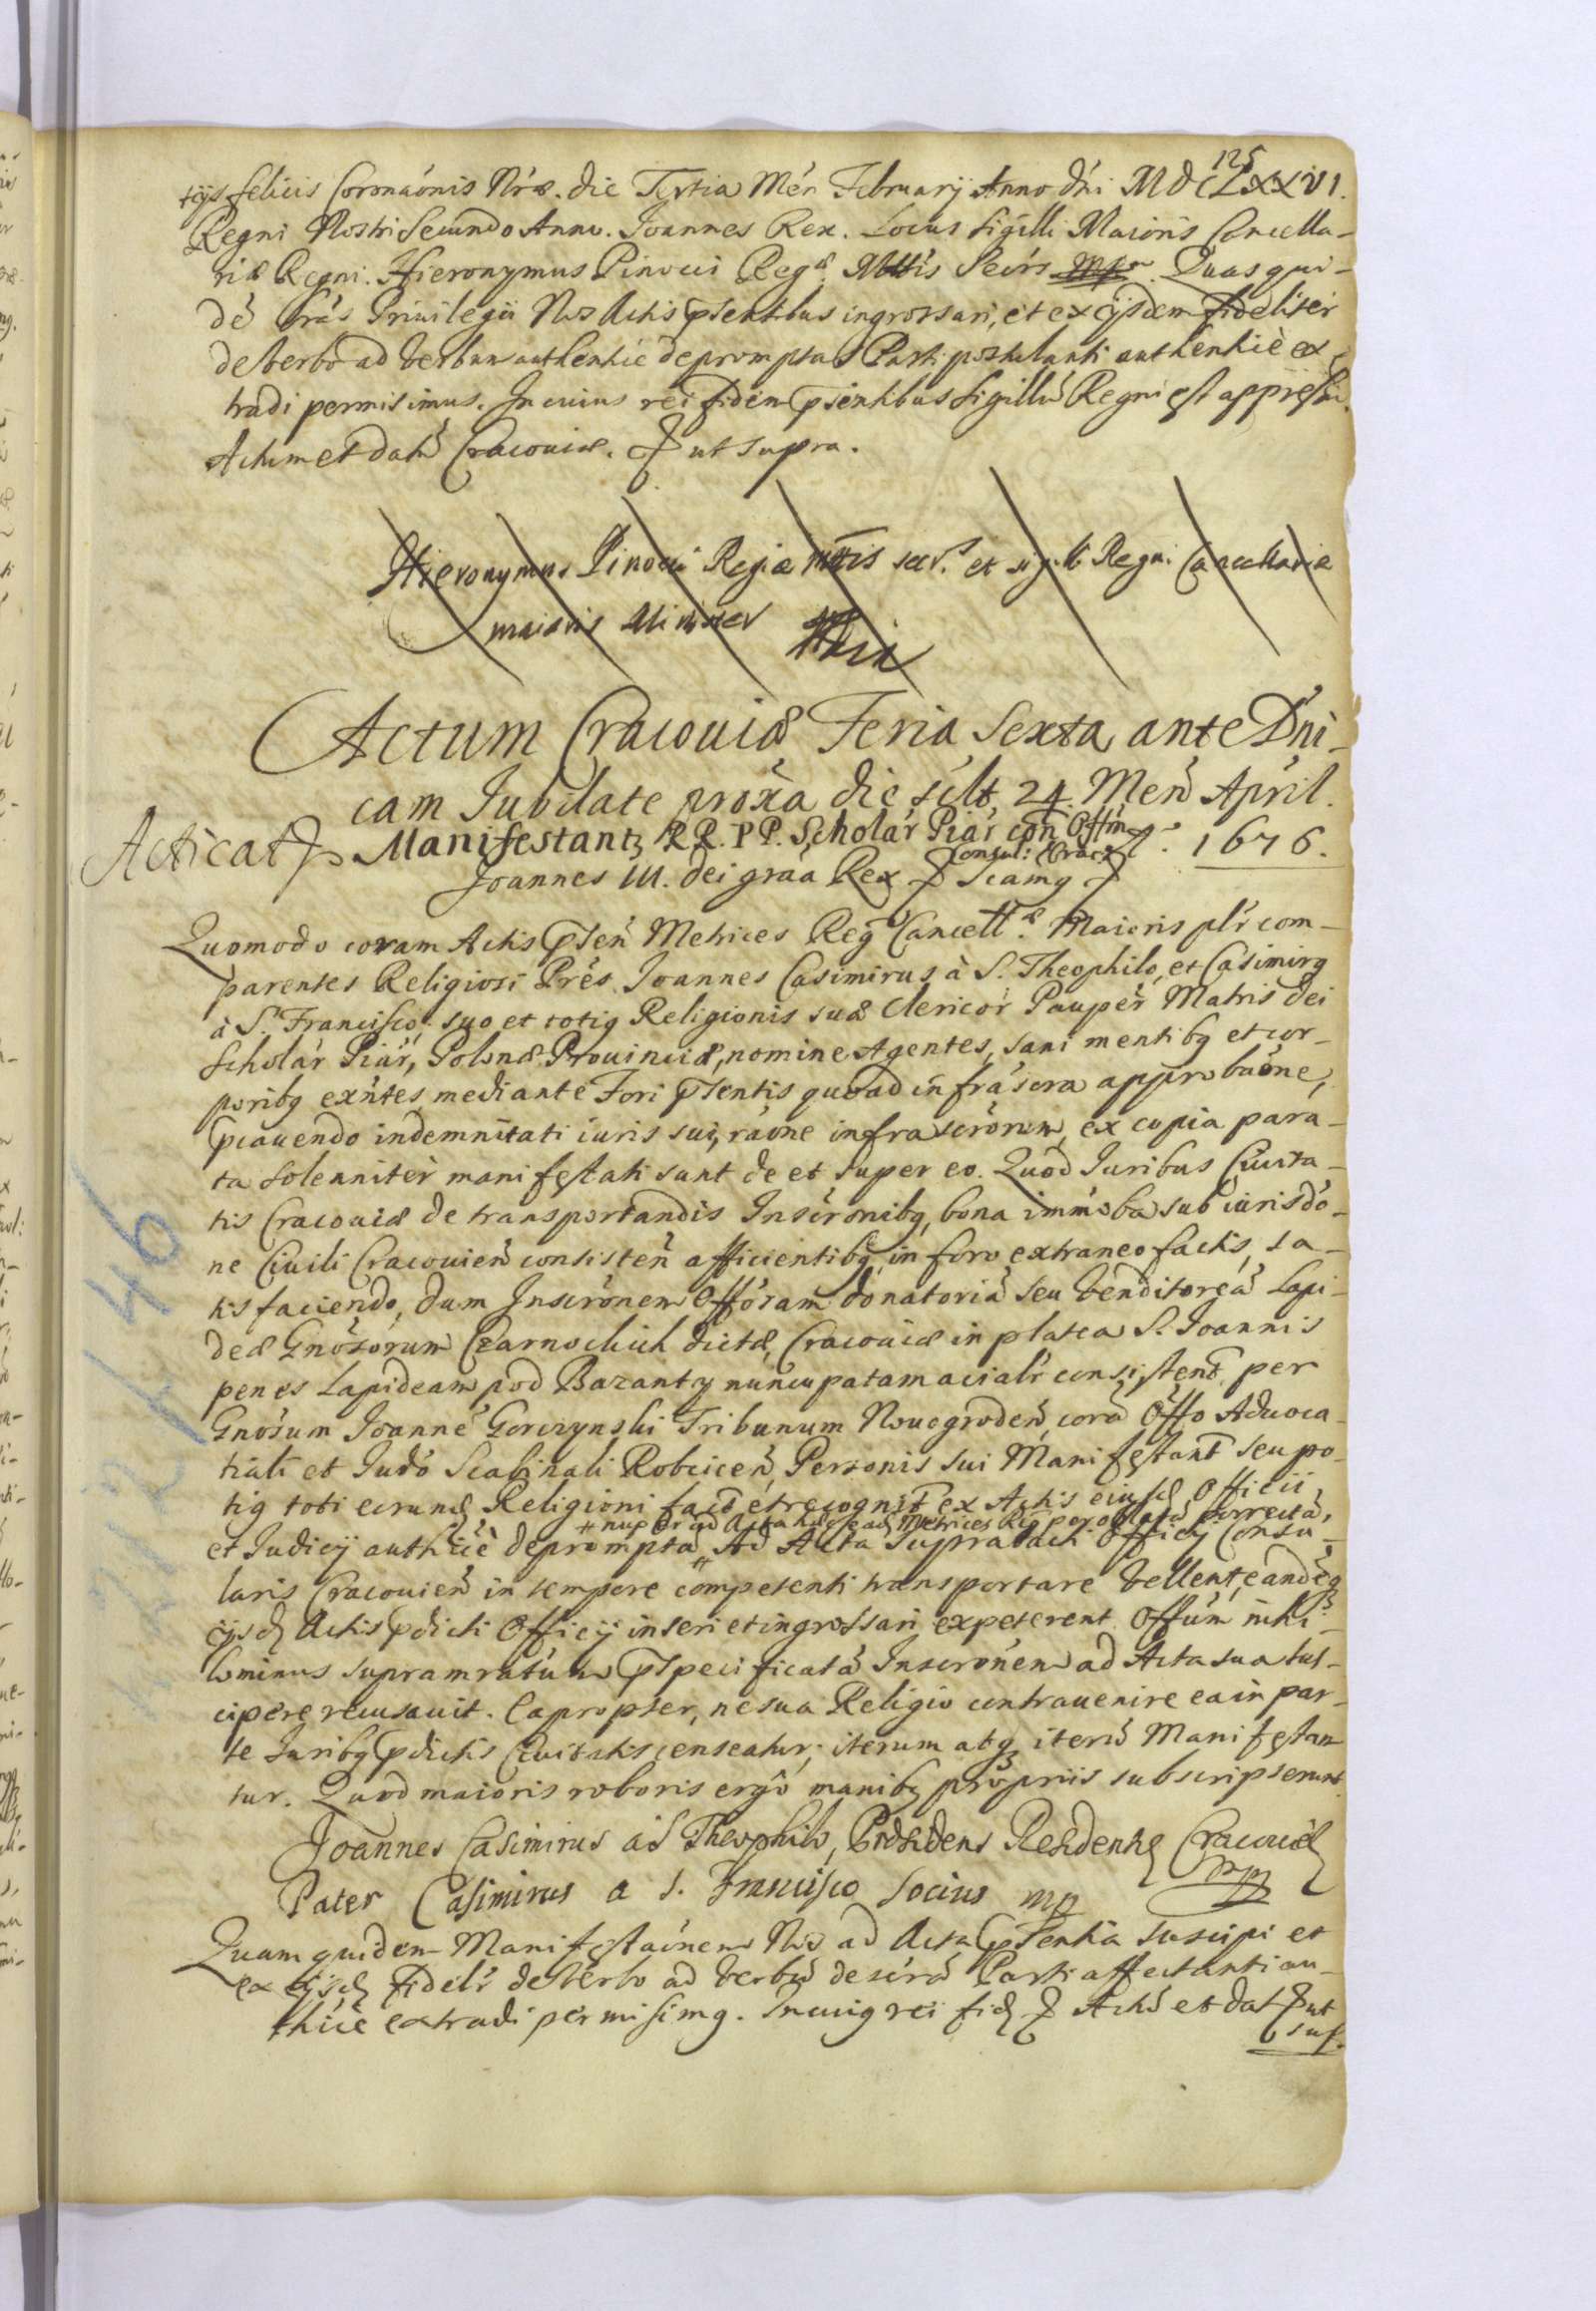 125
tijs felicis Coronaónis Nrae. die Tertia Men Februarij Anno dńi MDCLXXVI.
Regni Nostri Secundo Anno. Joannes Rex. Locus Sigilli Maioris Cancella-
riae Regni. Hieronymus Pinocci Regae Mttis Secrs mp. Quas qui-
dé Lrás Priuilegii Nos Actis pñtibus ingrossari, et ex ijsdem fideliter
de verbo ad verbum authentice depromptas Parti postulanti authentice ex
tradi permisimus. In cuius rei fidem pñtibus Sigillu Regni est appressu.
Actum et datu Cracouiae. ut supra.
Hieronymus Pinocci Regiae Mttis secr. et sigilli Regni Cancellariae
maioris Minister
Actum Cracouiae Feria Sexta ante Dńi-
cam Jubilate proxa die scilt 24. Men April.
Acticat Manifestant RR. PP. Scholar Piar con Offm
Consul: Crac A. 1676.
Joannes III. dei graá Rex Scimg
Quomodo coram Actis pñten Metrices Reg Cancellae Maioris plr com-
parentes Religiosi Pres Joannes Casimirus à S. Theophilo, et Casimirg
à S. Francisco, suo et totig Religionis suae Clericor Pauper Matris Dei
Scholar Piar, Polonae Prouinciae, nomine Agentes, sani mentibg et cor-
poribg exntes mediante Fori pñtentis quoad infrascra approbaóne,
pcauendo indemnitati iuris sui, raóne infrascrórum, ex copia para-
ta solenniter manifestati sunt de et super eo. Quod Juribus Ciuita-
tis Cracouiae de transportandis Inscronibg, bona immoba sub iurisdó-
ne Ciuili Cracouien consisten afficientibg, in foro extraneo factis, sa-
tisfaciendo, dum Inscrónem Offóram donatoria seu venditorea Lapi-
deae Gnosorum Czarnockich dictae, Cracouiae in platea S. Joannis
penes Lapideam pod Bazanty nuncupatam acialr consistent per
Gnosum Joanne Gorczynski Tribunum Nouogroden, cora Offo Aduoca-
tiali et Judó Scabinali Robcicen, Personis sui Manifestant seu po-
tig toti eorund Religioni fact et recognit ex Actis eiusd Officii,
# nuper ad Acta haec ead Metrices Reg per oblata porrecta,
et Judicij authice deprompta # Ad Acta supradicti Officij Consu-
laris Cracouien in tempore competenti transportare vellent, eandeq
ijsd Actis pdicti Officij inseri et ingrossari expeterent Offum nihi-
lominus supramratum pspecificata Inscrónem ad Acta sua sus-
cipere recusauit. Eapropter, ne sua Religio contrauenire ea in par-
te Juribg pdictis Ciuitatis censeatur, iterum atq iteru Manifestan-
tur. Quod maioris roboris ergo manibg proprijs subscripserunt.
Joannes Casimirus a S Theophilo, Praesidens Residentiae Cracouien
mp
Pater Casimirus a S. Francisco Socius mp
Quam quidem Manifestaónem Nos ad Acta pñtentia suscipi et
ex ijsd fidelr de verbo ad verbu descra Parti affectanti au-
thice extradi permisimg. In cuig rei fid Actu et dat ut
sup.